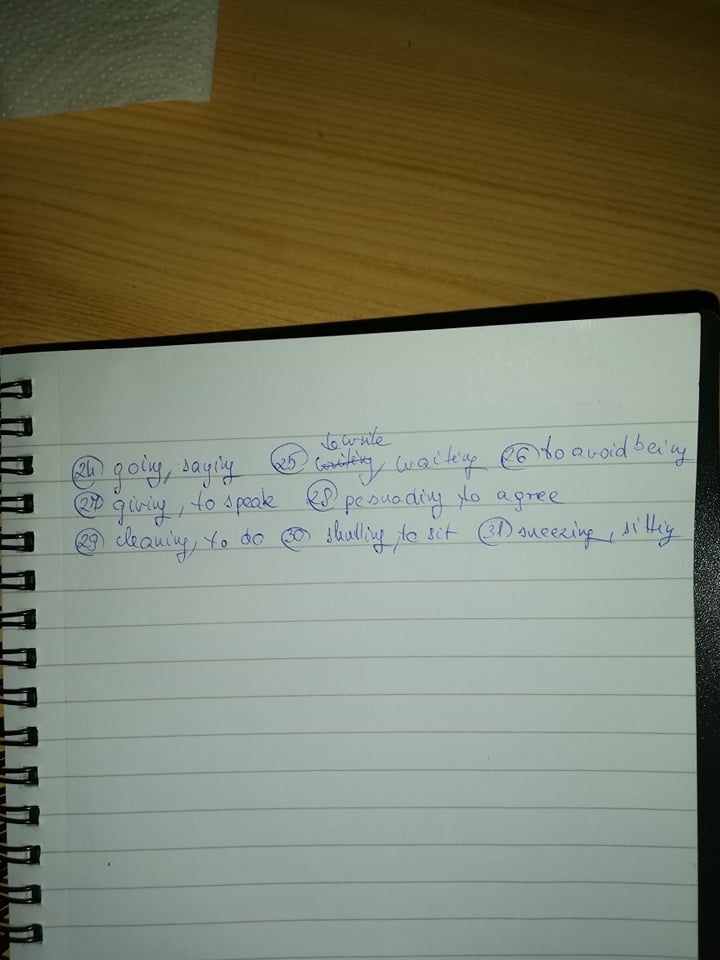 to write
24 going, saying 25 writing, waiting 26 to avoid being
27 giving, to speak 28 pesuading, to agree
29 cleaning, to do 30 shutting, to sit 31 sneezing, sittig